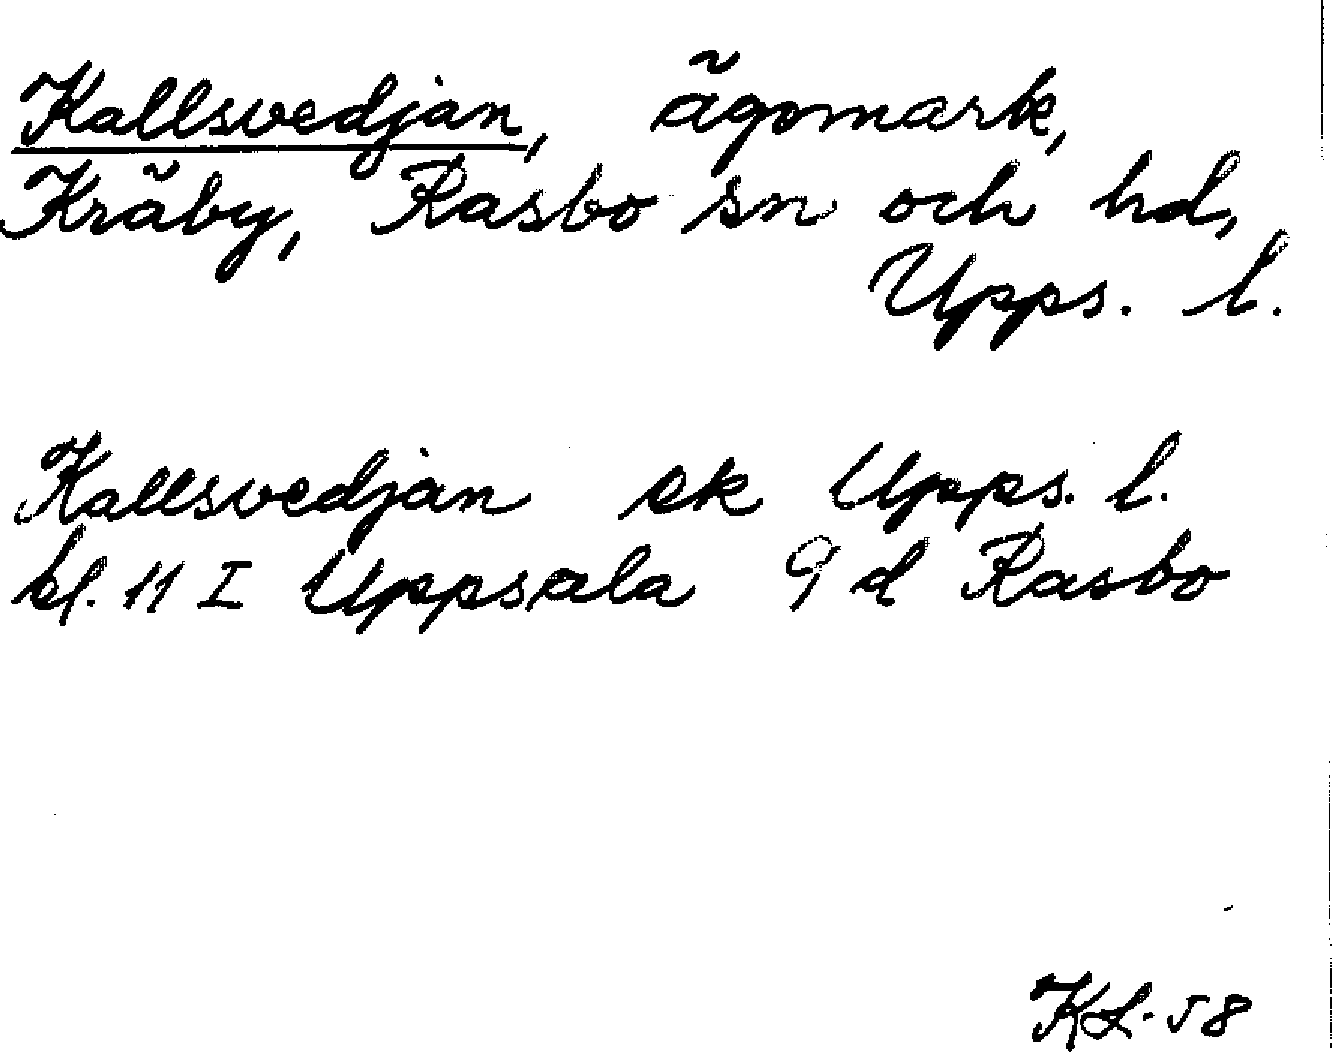 Kallsvedjan, ägomark,
Kräby, Rasbo sn och hd,
Upps. l.
Kallsvedjan ek Upps. l.
bl. 11 I Uppsala 9 d Rasbo
KL-58